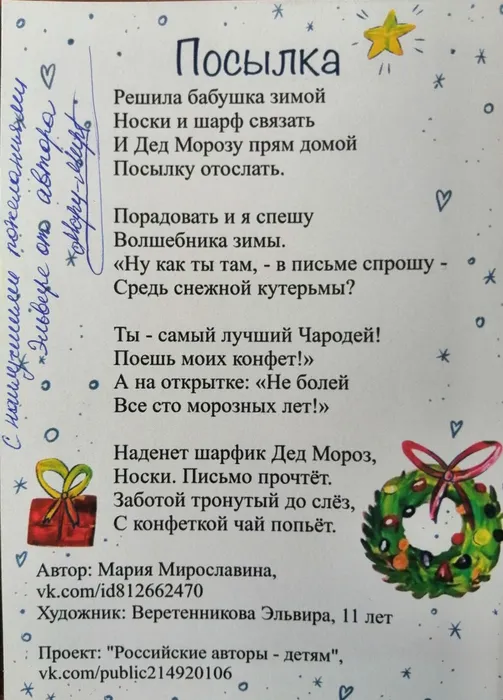 Посылка
Решила бабушка зимой
Носки и шарф связать
И Дед Морозу прям домой
Посылку отослать.
Порадовать и я спешу
Волшебника зимы.
«Ну как ты там, - в письме спрошу -
Средь снежной кутерьмы?
Ты - самый лучший Чародей!
Поешь моих конфет!»
А на открытке: «Не болей
Все сто морозных лет!»
Наденет шарфик Дед Мороз,
Носки. Письмо прочтёт.
Заботой тронутый до слёз,
С конфеткой чай попьёт.
Автор: Мария Мирославина,
vk.com/id812662470
Художник: Веретенникова Эльвира, 11 лет
Проект: "Российские авторы - детям",
vk.com/public214920106
С наилучшими пожеланиями
Эльвире от автора